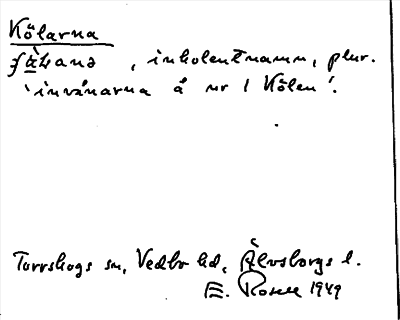 Kölarna
, inkolentnamn, plur.
'invånarna å nr 1 Kölen'.
Torrskogs sn, Vedbo hd, Älvsborgs l.
E. Rosell 1949